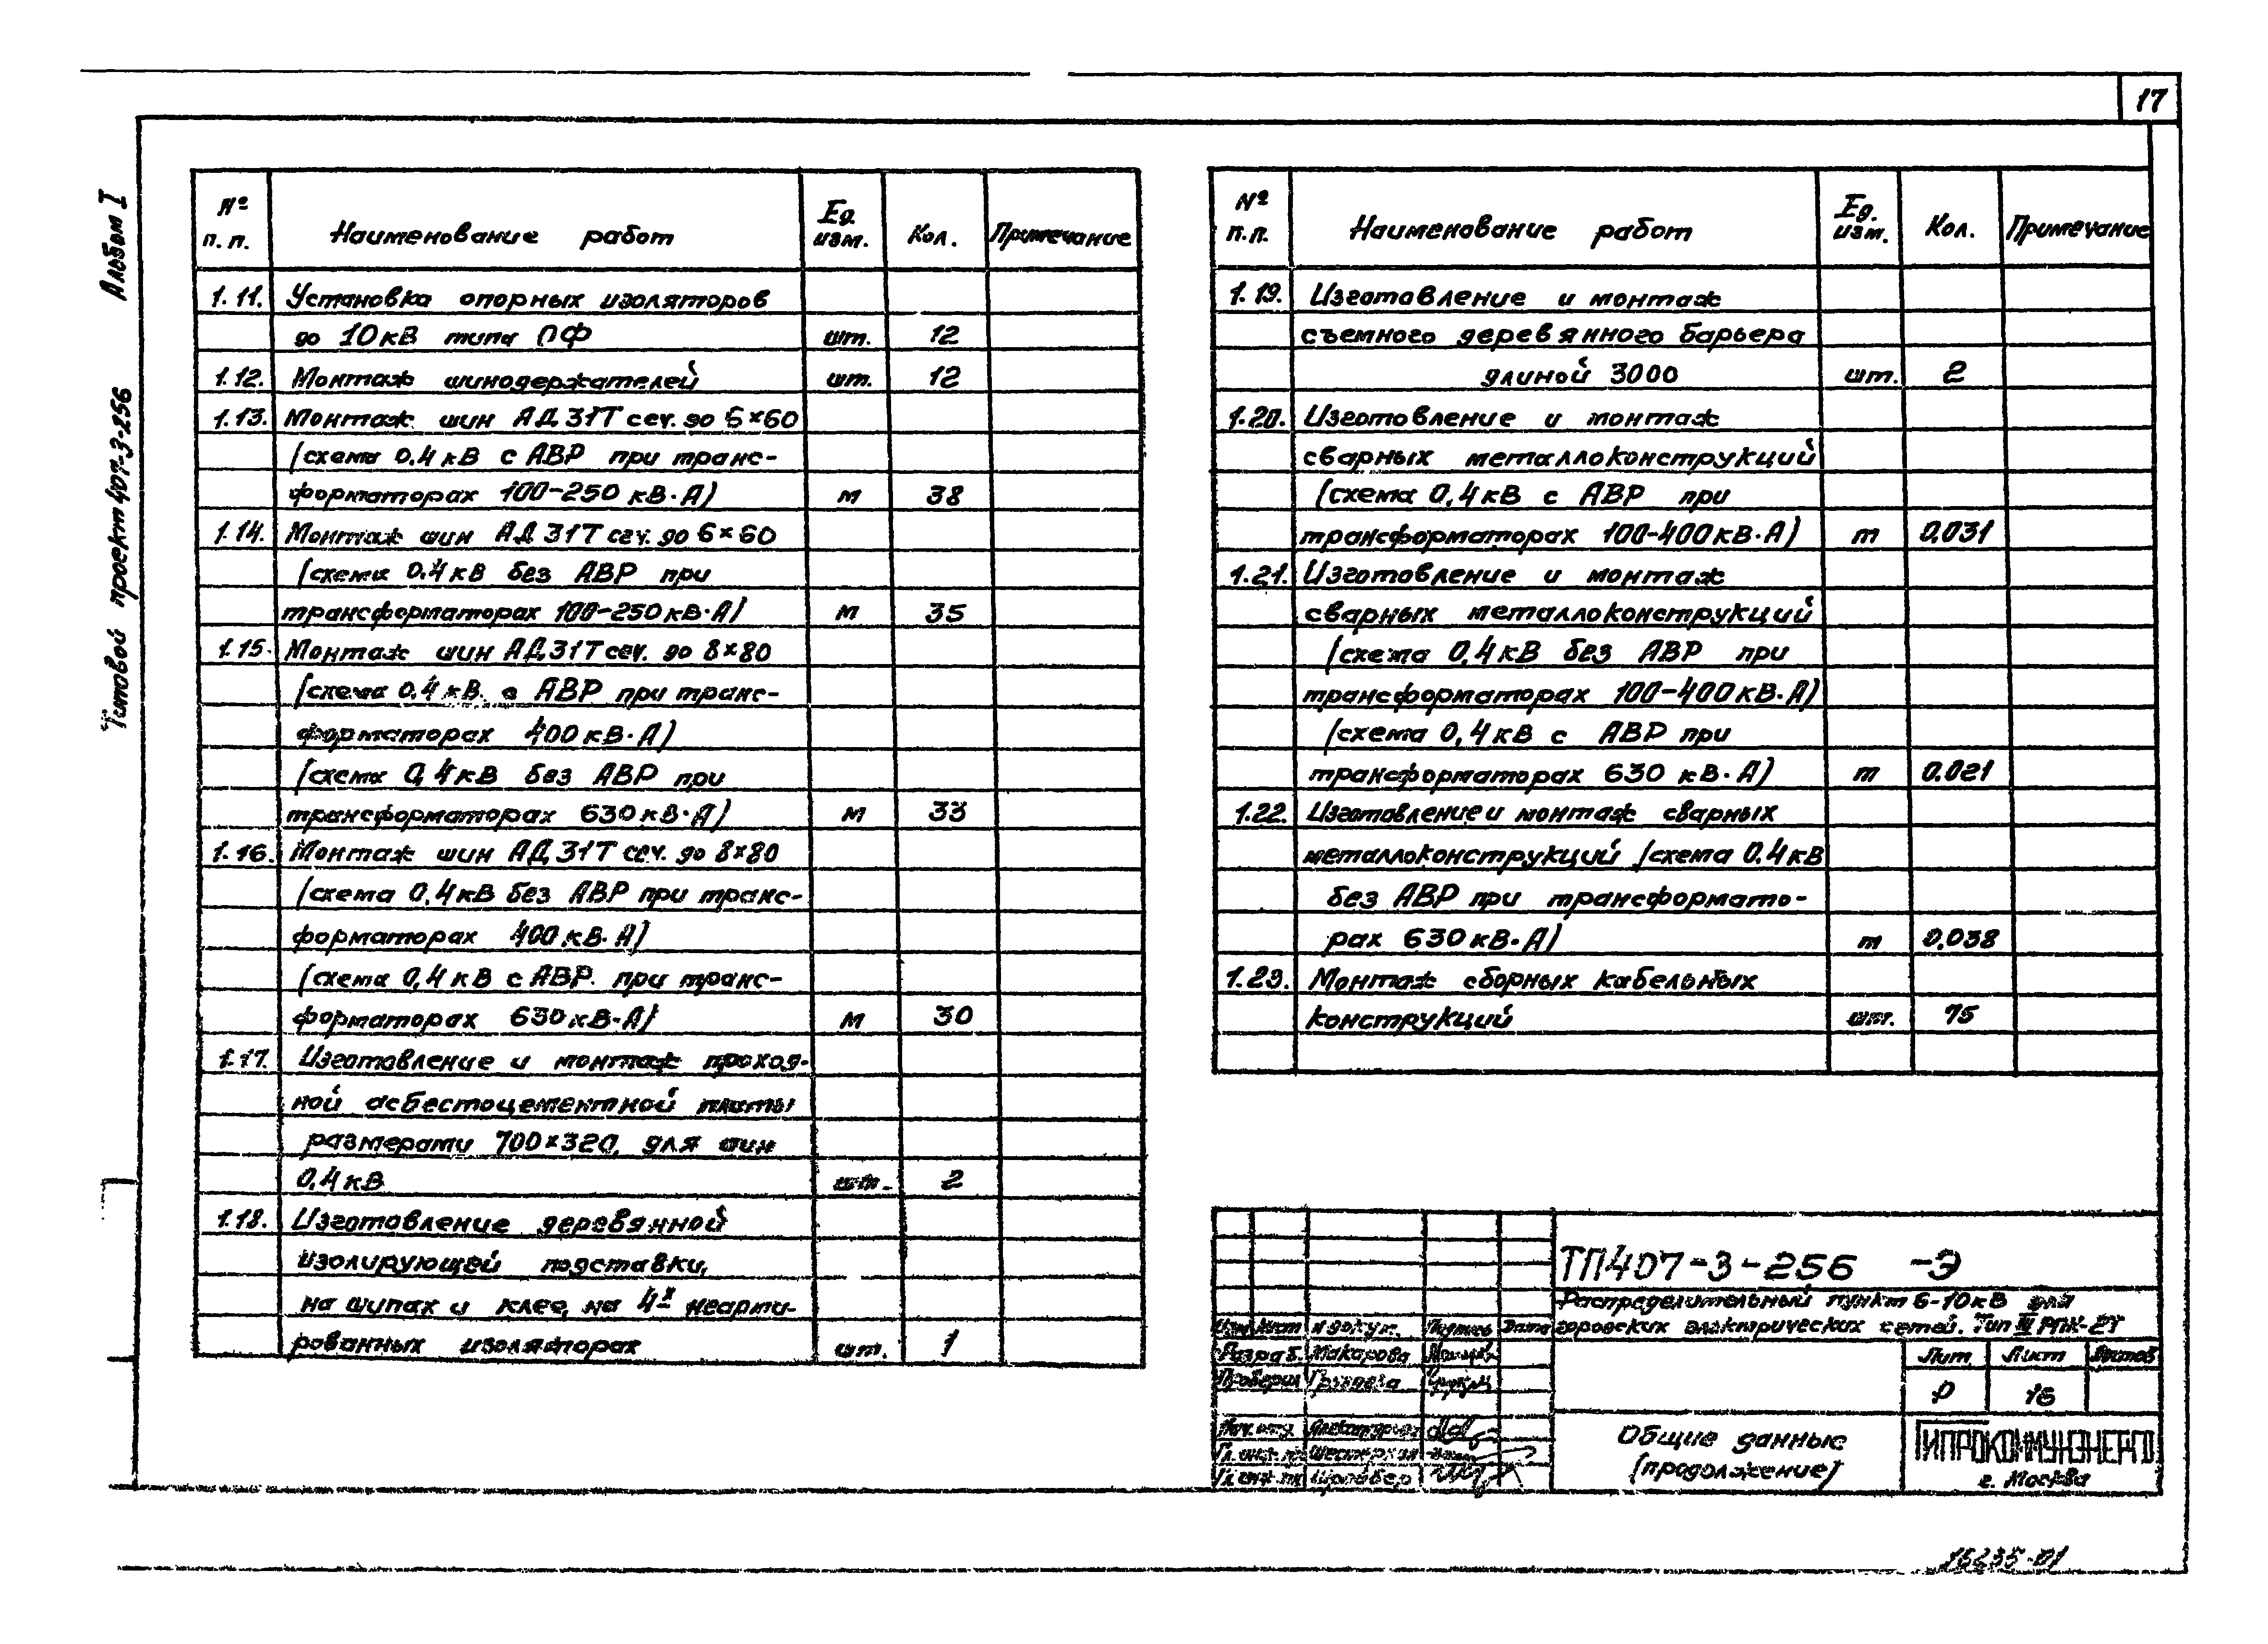 17
Альбом I
Типовой проект 407-3-256
№ п.п. Наименование работ Ед. изм. Кол. Примечание
1.11. Установка опорных изоляторов
до 10 кВ типа ПФ шт. 12
1.12. Монтаж шинодержателей шт. 12
1.13. Монтаж шин АД 31Т сеч. до 6×60
(схема 0.4 кВ с АВР при транс-
форматорах 100-250 кВ·А) м 38
1.14. Монтаж шин АД 31Т сеч. до 6×60
(схема 0.4 кВ без АВР при
трансформаторах 100-250 кВ·А) м 35
1.15. Монтаж шин АД 31Т сеч. до 8×80
(схема 0.4 кВ с АВР при транс-
форматорах 400 кВ·А)
(схема 0,4 кВ без АВР при
трансформаторах 630 кВ·А) м 33
1.16. Монтаж шин АД 31Т сеч. до 8×80
(схема 0,4 кВ без АВР при транс-
форматорах 400 кВ·А)
(схема 0,4 кВ с АВР при транс-
форматорах 630 кВ·А) м 30
1.17. Изготовление и монтаж проход-
ной асбестоцементной плиты
размерами 700×320, для шин
0,4 кВ шт. 2
1.18. Изготовление деревянной
изолирующей подставки,
на шипах и клее, на 4х неарми-
рованных изоляторах шт. 1
№ п.п. Наименование работ Ед. изм. Кол. Примечание
1.19. Изготовление и монтаж
съемного деревянного барьера
длиной 3000 шт. 2
1.20. Изготовление и монтаж
сварных металлоконструкций
(схема 0,4 кВ с АВР при
трансформаторах 100-400 кВ·А) т 0.031
1.21. Изготовление и монтаж
сварных металлоконструкций
(схема 0,4 кВ без АВР при
трансформаторах 100-400 кВ·А)
(схема 0,4 кВ с АВР при
трансформаторах 630 кВ·А) т 0.021
1.22. Изготовление и монтаж сварных
металлоконструкций (схема 0.4 кВ
без АВР при трансформато-
рах 630 кВ·А) т 0,038
1.23. Монтаж сборных кабельных
конструкций шт. 75
ТП407-3-256 -Э
Распределительный пункт 6-10 кВ для
городских электрических сетей. Тип III РПК-2Т
Изм Лист № докум. Подпись Дата
Разраб. Макарова
Проверил
Лит Лист Листов
Р 16
Общие данные
(продолжение)
ГИПРОКОММУНЭНЕРГО
г. Москва
Гл. инж. пр. Шрайбер